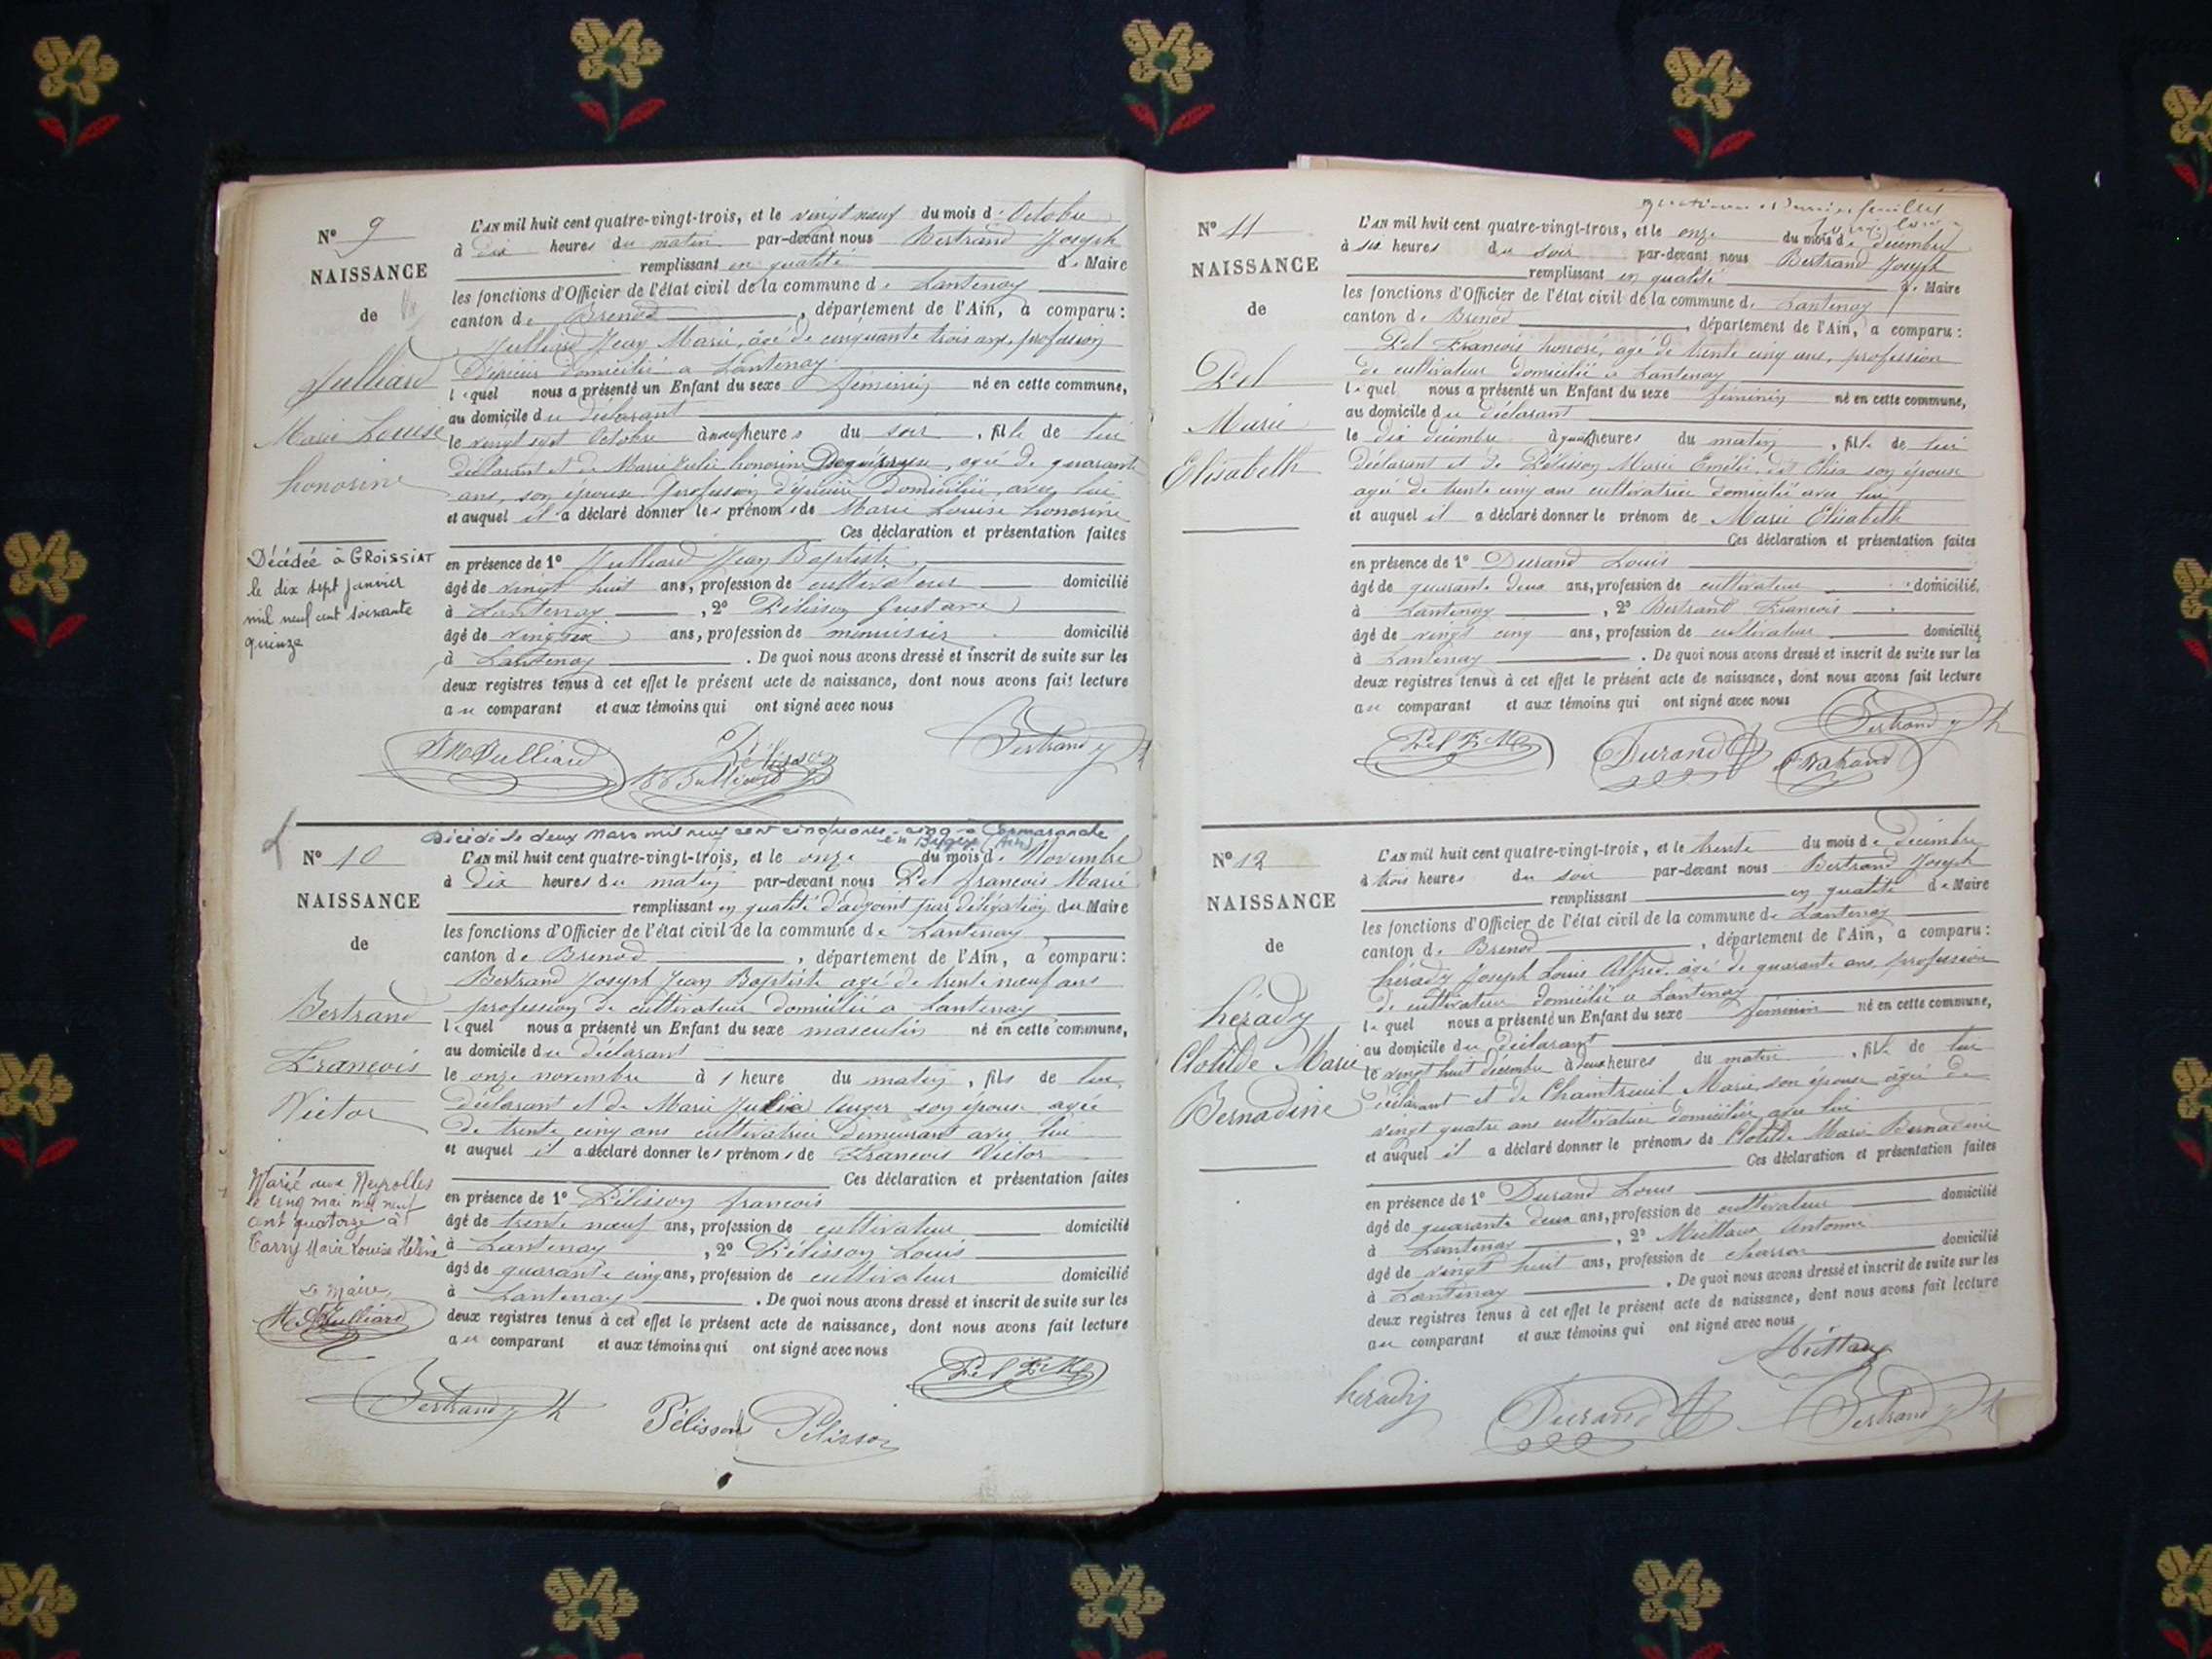 N° 9
NAISSANCE
de
Julliard
Marie Louise
honorine
Décédée à GROISSIAT
le dix sept janvier
mil neuf cent soixante
quinze
L'AN mil huit cent quatre-vingt-trois, et le vingt neuf du mois d'Octobre
à dix heures du matin par-devant nous Bertrand Joseph
remplissant en qualité de Maire
les fonctions d'Officier de l'état civil de la commune de Lantenay
canton de Brenod, département de l'Ain, a comparu:
Julliard Jean Marie, âgé de cinquante trois ans, profession
d'épicier domicilié a Lantenay
lequel nous a présenté un Enfant du sexe féminin né en cette commune,
au domicile du déclarant
le vingt sept Octobre à neuf heures du soir, fille de lui
déclarant et de Marie Julie honorine, agée de quarante
ans, son épouse profession d'épicière domiciliée avec lui
et auquel il a déclaré donner les prénoms de Marie Louise honorine
Ces déclaration et présentation faites
en présence de 1° Julliard Jean Baptiste
âgé de vingt huit ans, profession de cultivateur domicilié
à Lantenay, 2° Pélisson Gustave
âgé de ans, profession de menuisier domicilié
à Lantenay. De quoi nous avons dressé et inscrit de suite sur les
deux registres tenus à cet effet le présent acte de naissance, dont nous avons fait lecture
au comparant et aux témoins qui ont signé avec nous
JM Julliard Pélisson Bertrand J h
Julliard
Décédé le deux Mars mil neuf cent cinquante-cinq à Cormaranche
en Bugey (Ain)
N° 10
NAISSANCE
de
Bertrand
Francois
Victor
Marié aux Neyrolles
le cinq mai mil neuf
cent quatorze à
Carry Marie Louise Hélène
Le Maire,
Julliard
L'AN mil huit cent quatre-vingt-trois, et le onze du mois de Novembre
à dix heures du matin par-devant nous Pel francois Marie
remplissant en qualité d'adjoint par délégation du Maire
les fonctions d'Officier de l'état civil de la commune de Lantenay
canton de Brenod, département de l'Ain, a comparu:
Bertrand Joseph Jean Baptiste agé de trente neuf ans
profession de cultivateur domicilié a Lantenay
lequel nous a présenté un Enfant du sexe masculin né en cette commune,
au domicile du déclarant
le onze novembre à 1 heure du matin, fils de lui,
déclarant et de Marie Julie Auger son épouse agée
de trente cinq ans cultivatrice demeurant avec lui
et auquel il a déclaré donner les prénoms de Francois Victor
Ces déclaration et présentation faites
en présence de 1° Pélisson francois
âgé de trente neuf ans, profession de cultivateur domicilié
à Lantenay, 2° Pélisson Louis
âgé de quarante cinq ans, profession de cultivateur domicilié
à Lantenay. De quoi nous avons dressé et inscrit de suite sur les
deux registres tenus à cet effet le présent acte de naissance, dont nous avons fait lecture
au comparant et aux témoins qui ont signé avec nous
Pel F. M.
Bertrand J h Pélisson Pélisson
N° 11
NAISSANCE
de
Pel
Marie
Elisabeth
L'AN mil huit cent quatre-vingt-trois, et le onze du mois de décembre
à six heures du soir par-devant nous Bertrand Joseph
remplissant en qualité de Maire
les fonctions d'Officier de l'état civil de la commune de Lantenay
canton de Brenod, département de l'Ain, a comparu:
Pel Francois honoré, agé de trente cinq ans, profession
de cultivateur domicilié a Lantenay
lequel nous a présenté un Enfant du sexe féminin né en cette commune,
au domicile du déclarant
le dix décembre à heures du matin, fille de lui
déclarant et de Pélisson Marie Emélie dit Elisa son épouse
agée de trente cinq ans cultivatrice domicilié avec lui
et auquel il a déclaré donner le prénom de Marie Elisabeth
Ces déclaration et présentation faites
en présence de 1° Durand Louis
âgé de quarante deux ans, profession de cultivateur domicilié
à Lantenay, 2° Bertrand Francois
âgé de vingt cinq ans, profession de cultivateur domicilié
à Lantenay. De quoi nous avons dressé et inscrit de suite sur les
deux registres tenus à cet effet le présent acte de naissance, dont nous avons fait lecture
au comparant et aux témoins qui ont signé avec nous
Bertrand J h
Pel F. H. Durand Bertrand
N° 12
NAISSANCE
de
hérady
Clotilde Marie
Bernadine
L'AN mil huit cent quatre-vingt-trois, et le trente du mois de décembre
à trois heures du soir par-devant nous Bertrand Joseph
remplissant en qualité de Maire
les fonctions d'Officier de l'état civil de la commune de Lantenay
canton de Brenod, département de l'Ain, a comparu:
hérady Joseph Louis Alfred âgé de quarante ans, profession
de cultivateur domicilié a Lantenay
lequel nous a présenté un Enfant du sexe féminin né en cette commune,
au domicile du déclarant
le vingt huit décembre à deux heures du matin, fille de lui
déclarant et de Chaintreuil Marie son épouse âgée de
vingt quatre ans cultivatrice domiciliée avec lui
et auquel il a déclaré donner le prénoms de Clotilde Marie Bernadine
Ces déclaration et présentation faites
en présence de 1° Durand Louis
âgé de quarante deux ans, profession de cultivateur domicilié
à Lantenay, 2° Miettaux Antonin
âgé de vingt huit ans, profession de charron domicilié
à Lantenay. De quoi nous avons dressé et inscrit de suite sur les
deux registres tenus à cet effet le présent acte de naissance, dont nous avons fait lecture
au comparant et aux témoins qui ont signé avec nous
Miettaux
herady Durand Bertrand J h